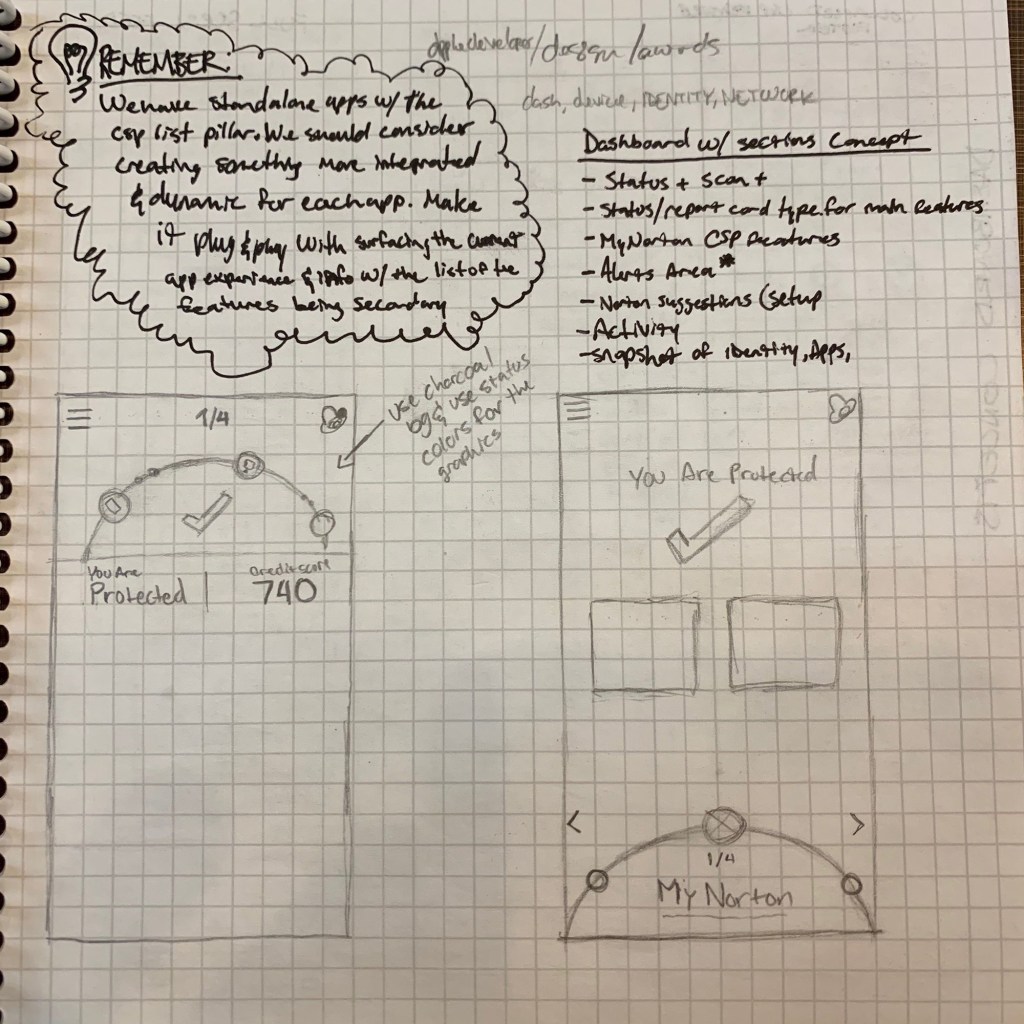 REMEMBER:
We have standalone apps w/ the
csp list pillar. We should consider
creating something more integrated
& dynamic for each app. Make
it plug & play with surfacing the current
app experience & info w/ the list of the
features being secondary
appledeveloper/design/awards
dash, device, IDENTITY, NETWORK
Dashboard w/ sections Concept
- Status + Scan +
- Status/report card type.for main features
- MyNorton CSP Features
- Alerts Area*
- Norton suggestions (setup
- Activity
- snapshot of identity, Apps,
use charcoal
bg & use status
colors for the
graphics
1/4
You Are
Protected
Credit score
740
You Are Protected
< >
1/4
My Norton